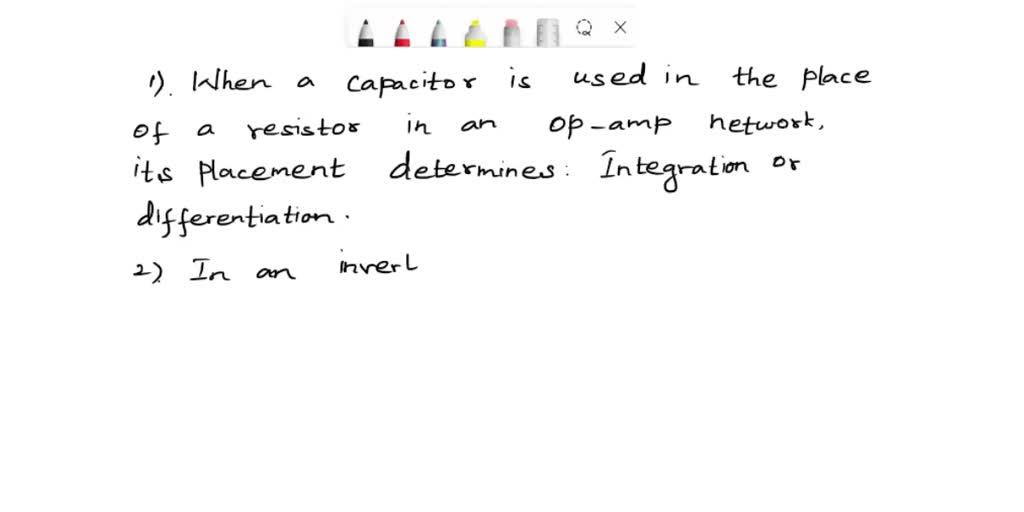 1). When a capacitor is used in the place
of a resistor in an op-amp network,
its placement determines: Integration or
differentiation.
2) In an invert